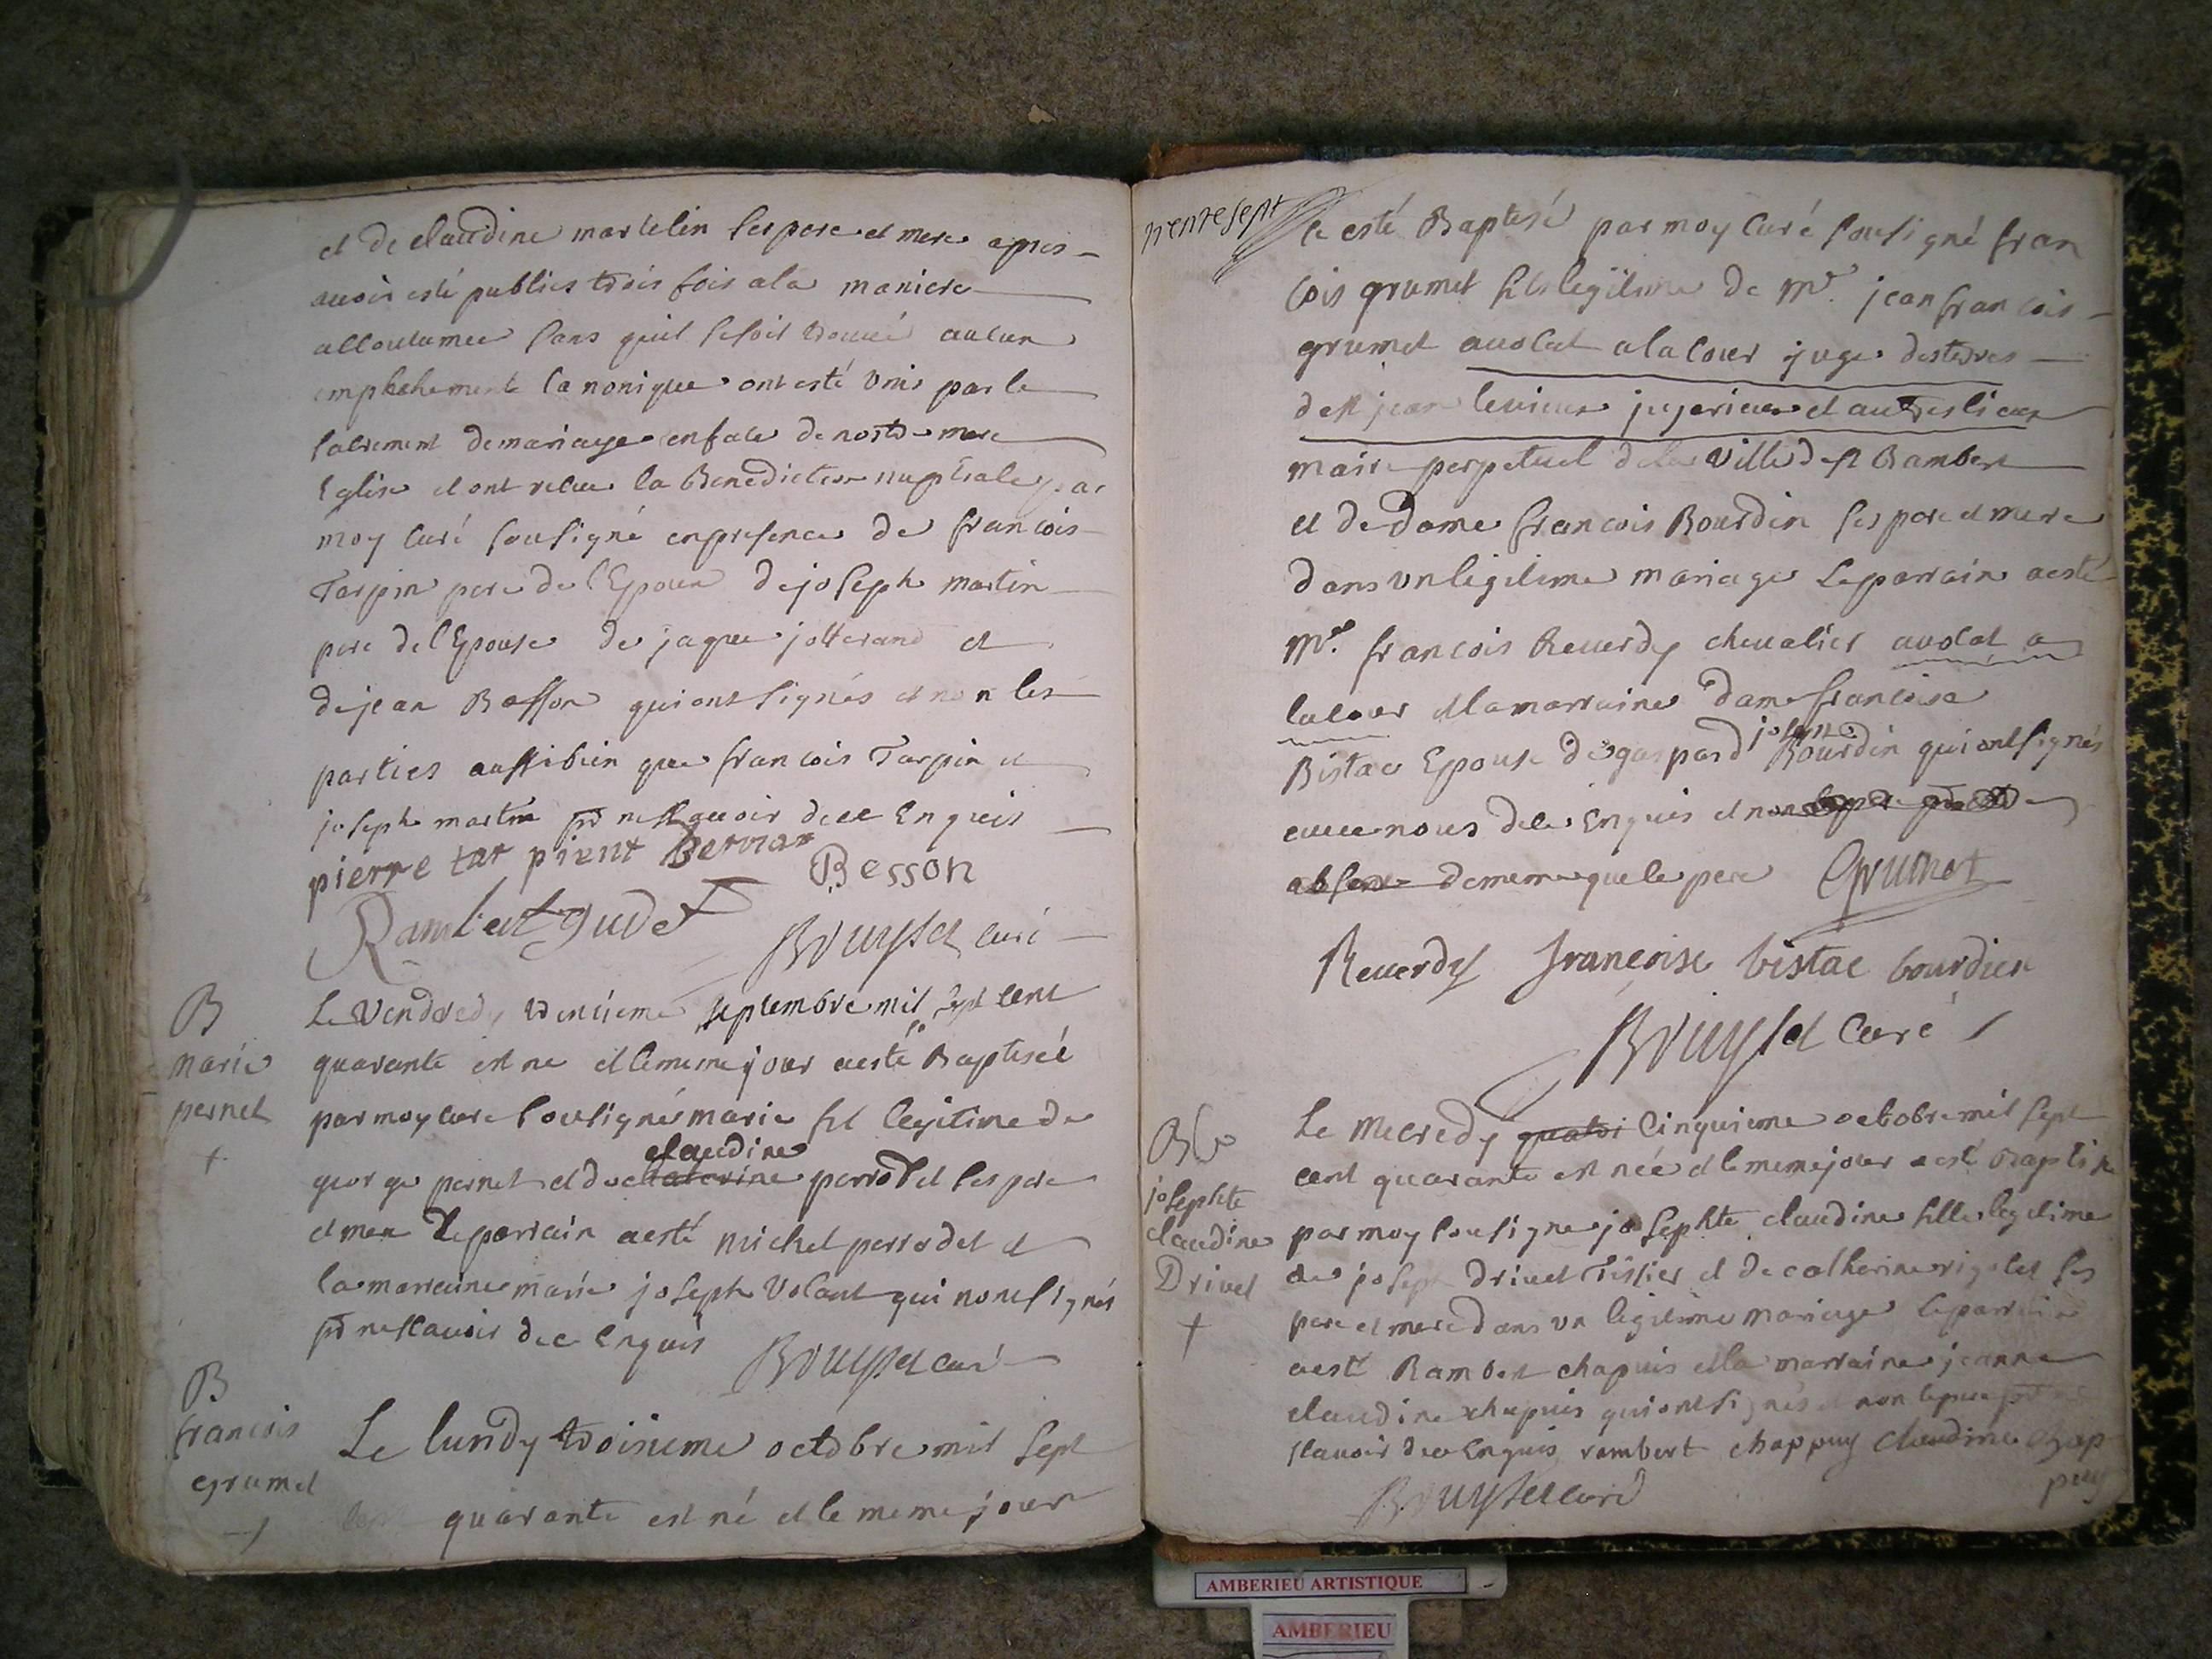 et de claudine martelin ses pere et mere apres
avoir esté publies trois fois a la maniere
accoutumee sans quil se soit trouué aucun
empechement canonique ont esté unis par le
sacrement de mariage en face de nostre mere
Eglise et ont recue la Benediction nuptiale par
moy curé sousigné en presence de francois
Tarpin pere de l'Epoux de joseph martin
pere de l'Epouse de jaque jotterand et
de jean Besson qui ont signés et non les
parties aussi bien que francois Tarpin et
joseph martin pr ne scavoir de ce Enquis
pierre
Besson
Rambert gudet
Bouysset curé
B
marie
pernet
†
Le Vendredy trentieme septembre mil sept cent
quarante est ne et le meme jour a esté Baptiseé
par moy cure sousigné marie fil legitime de
claudine
george pernet et de caterine perrodet ses pere
et mere le parrain a esté michel perrodet et
la marraine marie joseph Volant qui nont signés
pr ne scavoir de ce Enquis
Bouysset curé
B
francois
grumet
†
Le lundy troisieme octobre mil sept
cent quarante est né et le meme jour
trente sept
a esté Baptisé par moy Curé sousigné fran
cois grumet fils legitime de Mr. jean francois
grumet avocat a la cour juge des terres
de st jean levieux jujurieux et autres lieux
maire perpetuel de la Ville de st Rambert
et de Dame francois Bourdin ses pere et mere
dans un legitime mariage le parrain a esté
Mr. francois Reverdy chevalier avocat a
la cour et la marraine dame francoise
joseph
Bistac Epouse de gaspard Bourdin qui ont signés
avec nous de ce Enquis et non
absent de meme que le pere Grumet
Reverdy francoise bistac bourdin
Bouysset Curé
josephte
claudine
Drivet
†
Le Mecredy quatri Cinquieme octobre mil sept
cent quarante est née et le meme jour a esté Baptisée
par moy sousigne josephte claudine fille legitime
de joseph drivet Tissier et de catherine rigolet ses
pere et mere dans un legitime mariage le parrain
a esté Rambert chapuis et la marraine jeanne
claudine chapuis qui ont signés et non le pere pr ne
scavoir de ce Enquis rambert chappuy Claudine Chap
puy
Bouysset curé
AMBERIEU ARTISTIQUE
AMBERIEU